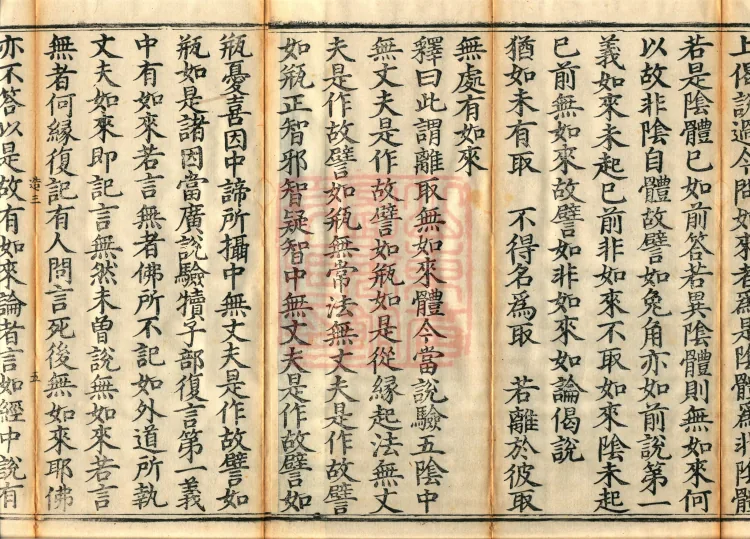 上偈說過今問如來者爲是陰體爲非陰體
若是陰體已如前答若異陰體則無如來何
以故非陰自體故譬如兔角亦如前說第一
義如來未起已前非如來不取如來陰未起
已前無如來故譬如非如來如論偈說
猶如未有取 不得名爲取 若離於彼取
無處有如來
釋曰此謂離取無如來體今當說驗五陰中
無丈夫是作故譬如瓶如是從緣起法無丈
夫是作故譬如瓶無常法無丈夫是作故譬
如瓶正智邪智疑智中無丈夫是作故譬如
瓶憂喜因中諦所攝中無丈夫是作故譬如
瓶如是諸因當廣說驗犢子部復言第一義
中有如來若言無者佛所不記如外道所執
丈夫如來即記言無然未曾說無如來若言
造三 五
無者何緣復記有人問言死後無如來耶佛
亦不答以是故有如來論者言如經中說有